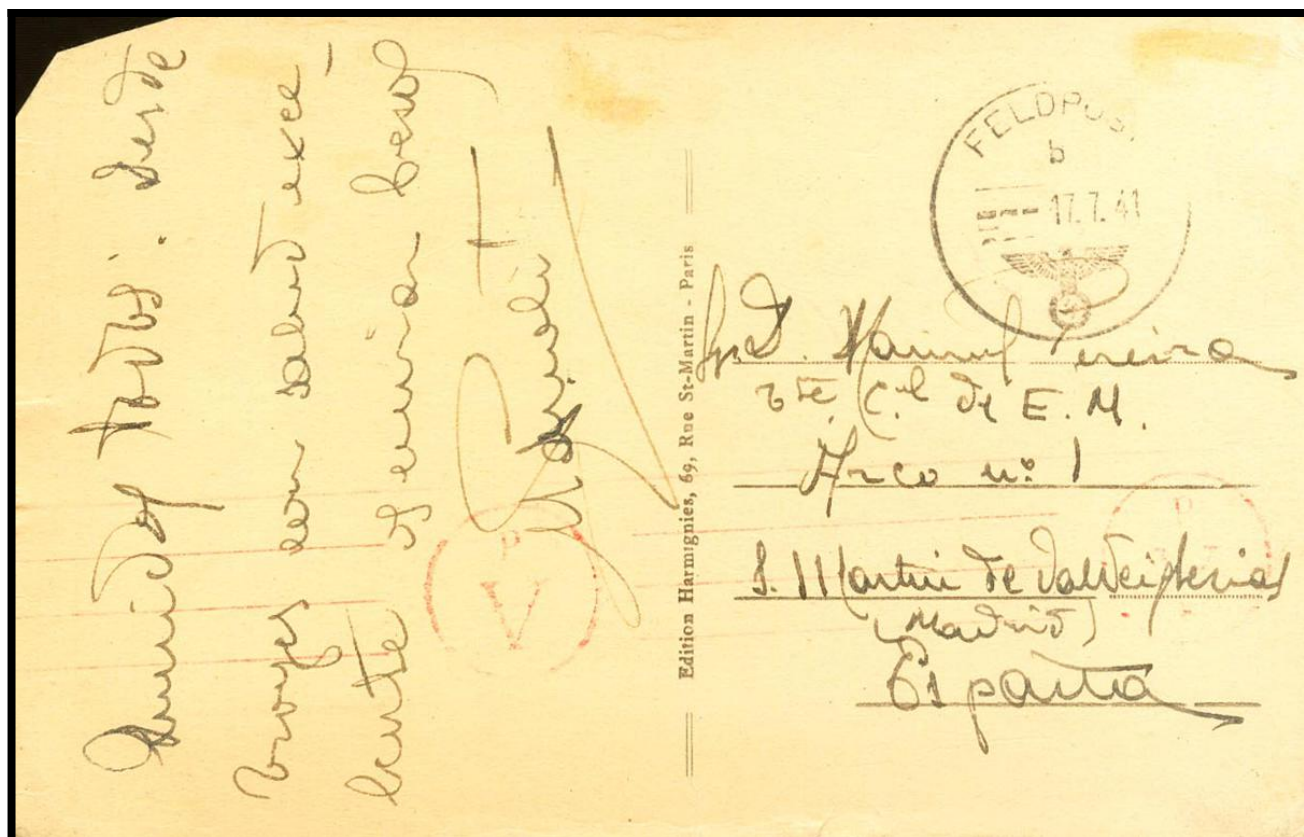 Queridos todos: desde
con salud exce-
lente os envía besos
Manolo
Edition Harmignies, 69, Rue St-Martin - Paris
FELDPOST
b
17.7.41
Sr. D. Manuel
Tte. C.el de E. M.
Arco nº 1
S. Martin de Valdeiglesias
(Madrid)
España
P
V